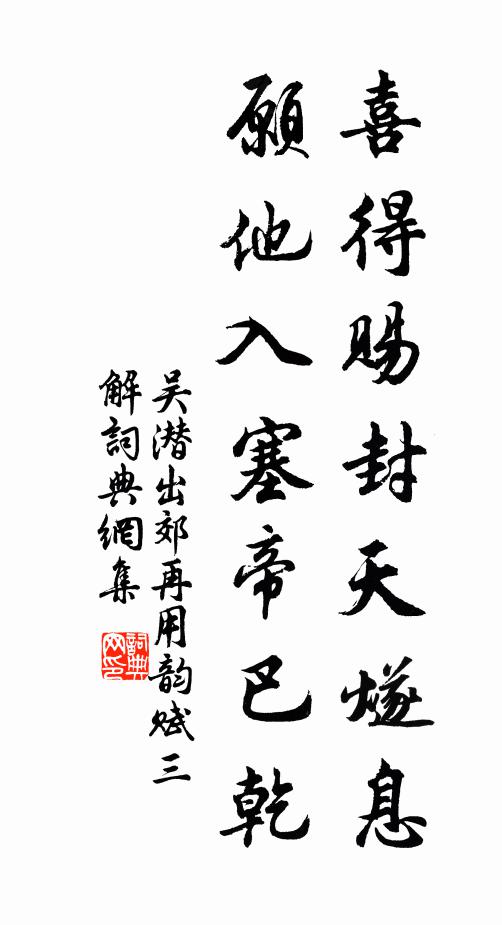 喜得賜封天燧息
願他入塞帝巴乾
吴潛出郊再用韵赋三
解詞典網集
詞典网印